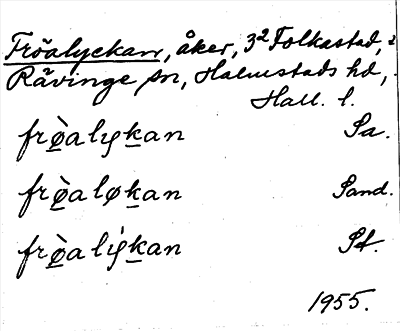 Fröalyckan, åker, 3² Folkastad,
Rävinge sn, Halmstads hd,
Hall. l.
frø̀alykan Sa.
frø̀aløkan Sand.
frø̀alýkan St.
1955.